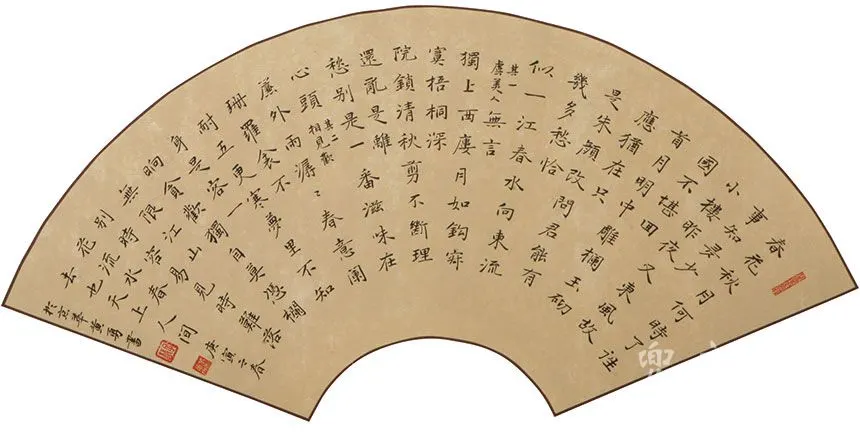 春花秋月何時了往
事知多少
小樓昨夜又東風故
國不堪回
首月明中雕欄玉砌
應猶在只
是朱顏改問君能有
幾多愁恰
似一江春水向東流
其一虞美人無言
獨上西廔月如鈎寂
寞梧桐深
院鎖清秋剪不斷理
還亂是離
愁别是一番滋味在
心頭其二相見歡
簾外雨潺〻春意闌
珊羅衾不
耐五更寒夢里不知
身是客一
晌貪歡獨自莫憑欄
無限江山
别時容易見時難落
花流水春
去也天上人间庚寅之春
於京華黄勇書